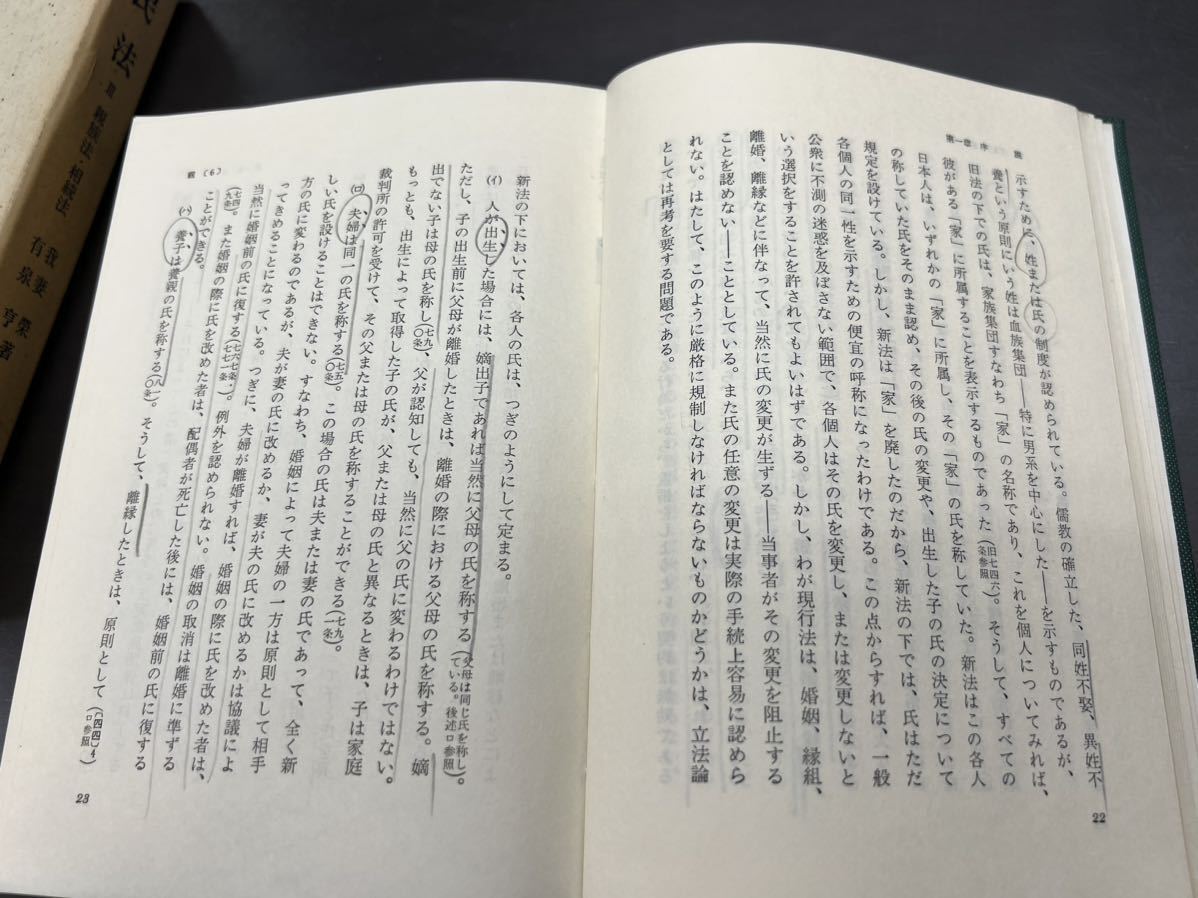 民法 Ⅲ 親族法・相続法
我妻 榮
有泉 亨 著
第一章 序 説
示すために、姓または氏の制度が認められている。儒教の確立した、同姓不娶、異姓不
養という原則にいう姓は血族集団――特に男系を中心にした――を示すものであるが、
旧法の下での氏は、家族集団すなわち「家」の名称であり、これを個人についてみれば、
彼がある「家」に所属することを表示するものであった（旧七四六条参照）。そうして、すべての
日本人は、いずれかの「家」に所属し、その「家」の氏を称していた。新法はこの各人
の称していた氏をそのまま認め、その後の氏の変更や、出生した子の氏の決定について
規定を設けている。しかし、新法は「家」を廃したのだから、新法の下では、氏はただ
各個人の同一性を示すための便宜の呼称になったわけである。この点からすれば、一般
公衆に不測の迷惑を及ぼさない範囲で、各個人はその氏を変更し、または変更しないと
いう選択をすることを許されてもよいはずである。しかし、わが現行法は、婚姻、縁組、
離婚、離縁などに伴なって、当然に氏の変更が生ずる――当事者がその変更を阻止する
ことを認めない――こととしている。また氏の任意の変更は実際の手続上容易に認めら
れない。はたして、このように厳格に規制しなければならないものかどうかは、立法論
としては再考を要する問題である。
22
〔6〕
新法の下においては、各人の氏は、つぎのようにして定まる。
(イ) 人が出生した場合には、嫡出子であれば当然に父母の氏を称する（父母は同じ氏を称している。後述ロ参照）。
ただし、子の出生前に父母が離婚したときは、離婚の際における父母の氏を称する。嫡
出でない子は母の氏を称し（七九〇条）、父が認知しても、当然に父の氏に変わるわけではない。
もっとも、出生によって取得した子の氏が、父または母の氏と異なるときは、子は家庭
裁判所の許可を受けて、その父または母の氏を称することができる（七九一条）。
(ロ) 夫婦は同一の氏を称する（七五〇条）。この場合の氏は夫または妻の氏であって、全く新
しい氏を設けることはできない。すなわち、婚姻によって夫婦の一方は原則として相手
方の氏に変わるのであるが、夫が妻の氏に改めるか、妻が夫の氏に改めるかは協議によ
ってきめることになっている。つぎに、夫婦が離婚すれば、婚姻の際に氏を改めた者は、
当然に婚姻前の氏に復する（七六七条・七七一条）。例外を認められない。婚姻の取消は離婚に準ずる
（七四九条）。また婚姻の際に氏を改めた者は、配偶者が死亡した後には、婚姻前の氏に復する
ことができる。
(ハ) 養子は養親の氏を称する（八一〇条）。そうして、離縁したときは、原則として（〔四四〕4ロ参照）
23